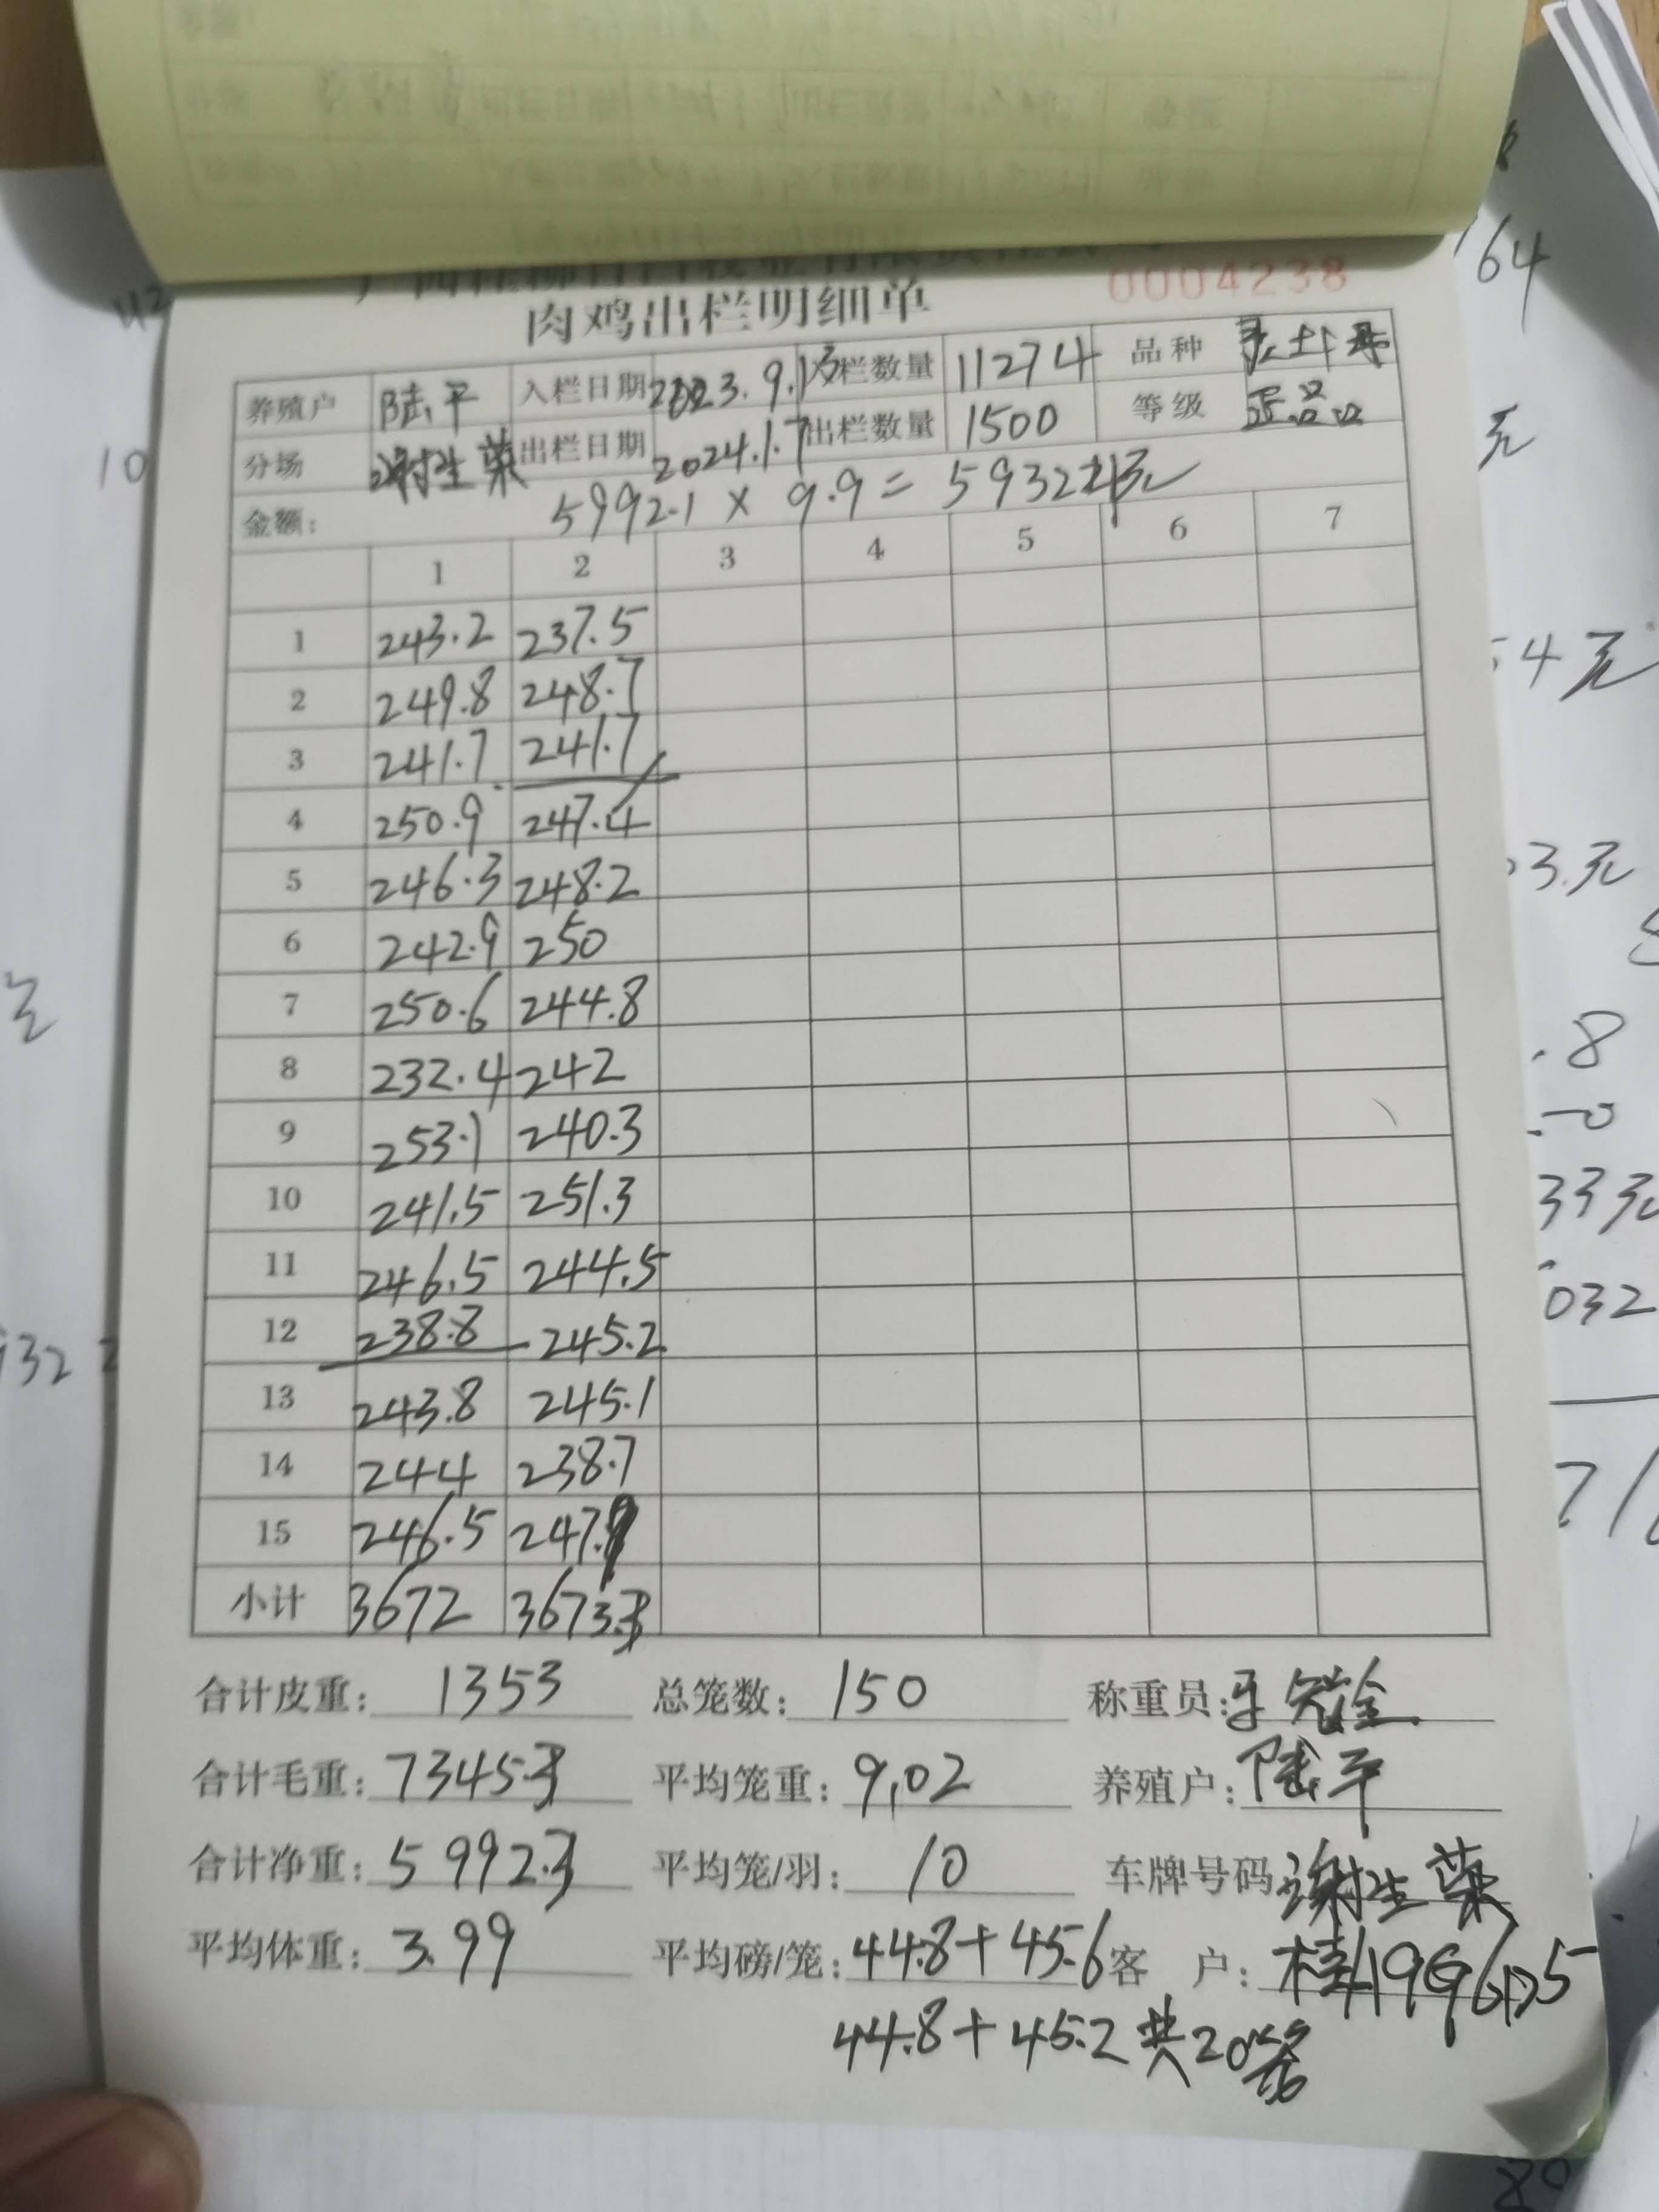 0004238
肉鸡出栏明细单
养殖户 陆平 入栏日期 2023.9.13 入栏数量 11274 品种
分场 谢生荣 出栏日期 2024.1.7 出栏数量 1500 等级 正品
金额: 5992.1 × 9.9 = 59322元
1 2 3 4 5 6 7
1 243.2 237.5
2 249.8 248.7
3 241.7 241.7
4 250.9 247.4
5 246.3 248.2
6 242.9 250
7 250.6 244.8
8 232.4 242
9 253.1 240.3
10 241.5 251.3
11 246.5 244.5
12 238.8 245.2
13 243.8 245.1
14 244 238.7
15 246.5 247.9
小计 3672 3673.3
合计皮重: 1353 总笼数: 150 称重员:
合计毛重: 7345.3 平均笼重: 9,02 养殖户: 陆平
合计净重: 5992.3 平均笼/羽: 10 车牌号码 谢生荣
平均体重: 3.99 平均磅/笼: 44.8+45.6 客 户:
44.8+45.2 共20笼
164
元
10
54元
03.元
.8
33元
032
932 2
71